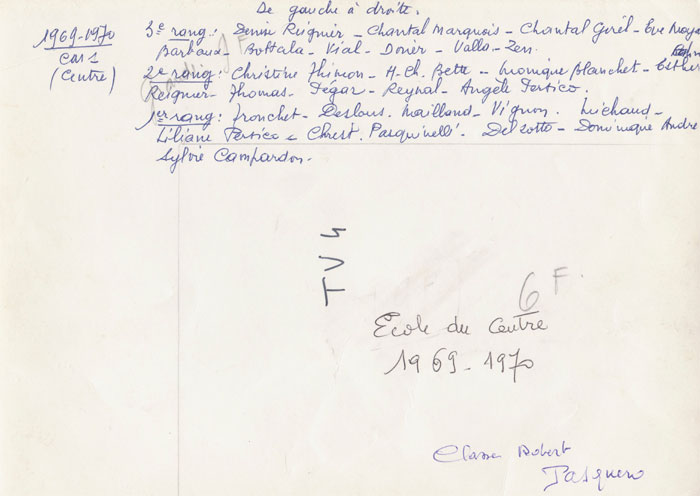 De gauche à droite.
1969-1970
CMS 1
(Centre)
3e rang: Denise Reignier - Chantal Marquois - Chantal Girel - Eve
Barbaux - Bottala - Vial - Donier - Valla - Zen.
2e rang: Christine Thimon - M-Ch. Bette - Monique Blanchet - Esther
Reignier - Thomas - Degar - Reynal - Angèle Pertico.
1er rang: Tronchet - Deslous. Mailland - Vignon. Michaud -
Liliane Pertico - Christ. Pasquinelli - Delsotto - Dominique Andre
Sylvie Campardon.
TV4
6 F.
Ecole du Centre
1969-1970
Classe Robert
Pasquero